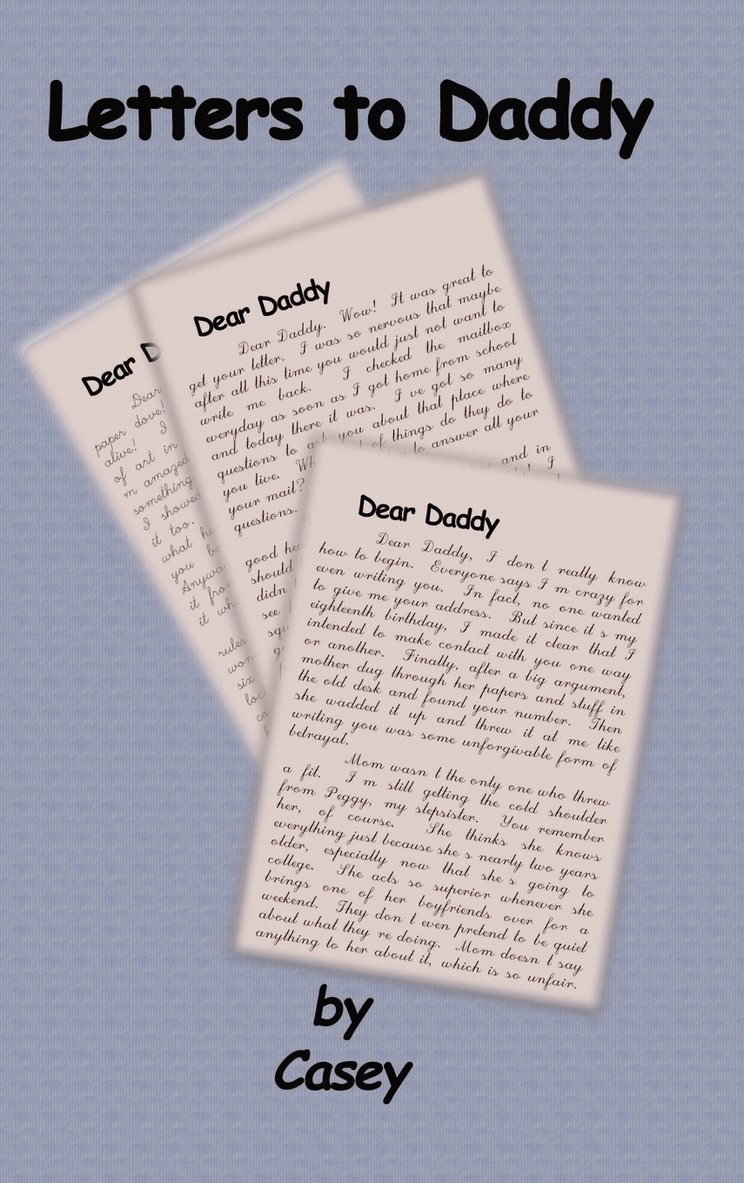 Letters to Daddy
Dear D
Dear
paper dove!
alive! I
of art in
m amazed
something
I showed
it too.
what he
you be
Anywa
it fro
it whi
rules
won
six
loc
co
Dear Daddy
Dear Daddy. Wow! It was great to
get your letter. I was so nervous that maybe
after all this time you would just not want to
write me back. I checked the mailbox
everyday as soon as I got home from school
and today there it was. I ve got so many
questions to ask you about that place where
you live. Wh of things do they do to
your mail? to answer all your
questions. and in
good hea I
should
didn
see
squ
Dear Daddy
Dear Daddy, I don t really know
how to begin. Everyone says I m crazy for
even writing you. In fact, no one wanted
to give me your address. But since it s my
eighteenth birthday, I made it clear that I
intended to make contact with you one way
or another. Finally, after a big argument,
mother dug through her papers and stuff in
the old desk and found your number. Then
she wadded it up and threw it at me like
writing you was some unforgivable form of
betrayal.
Mom wasn t the only one who threw
a fit. I m still getting the cold shoulder
from Peggy, my stepsister. You remember
her, of course. She thinks she knows
everything just because she s nearly two years
older, especially now that she s going to
college. She acts so superior whenever she
brings one of her boyfriends over for a
weekend. They don t even pretend to be quiet
about what they re doing. Mom doesn t say
anything to her about it, which is so unfair.
by
Casey